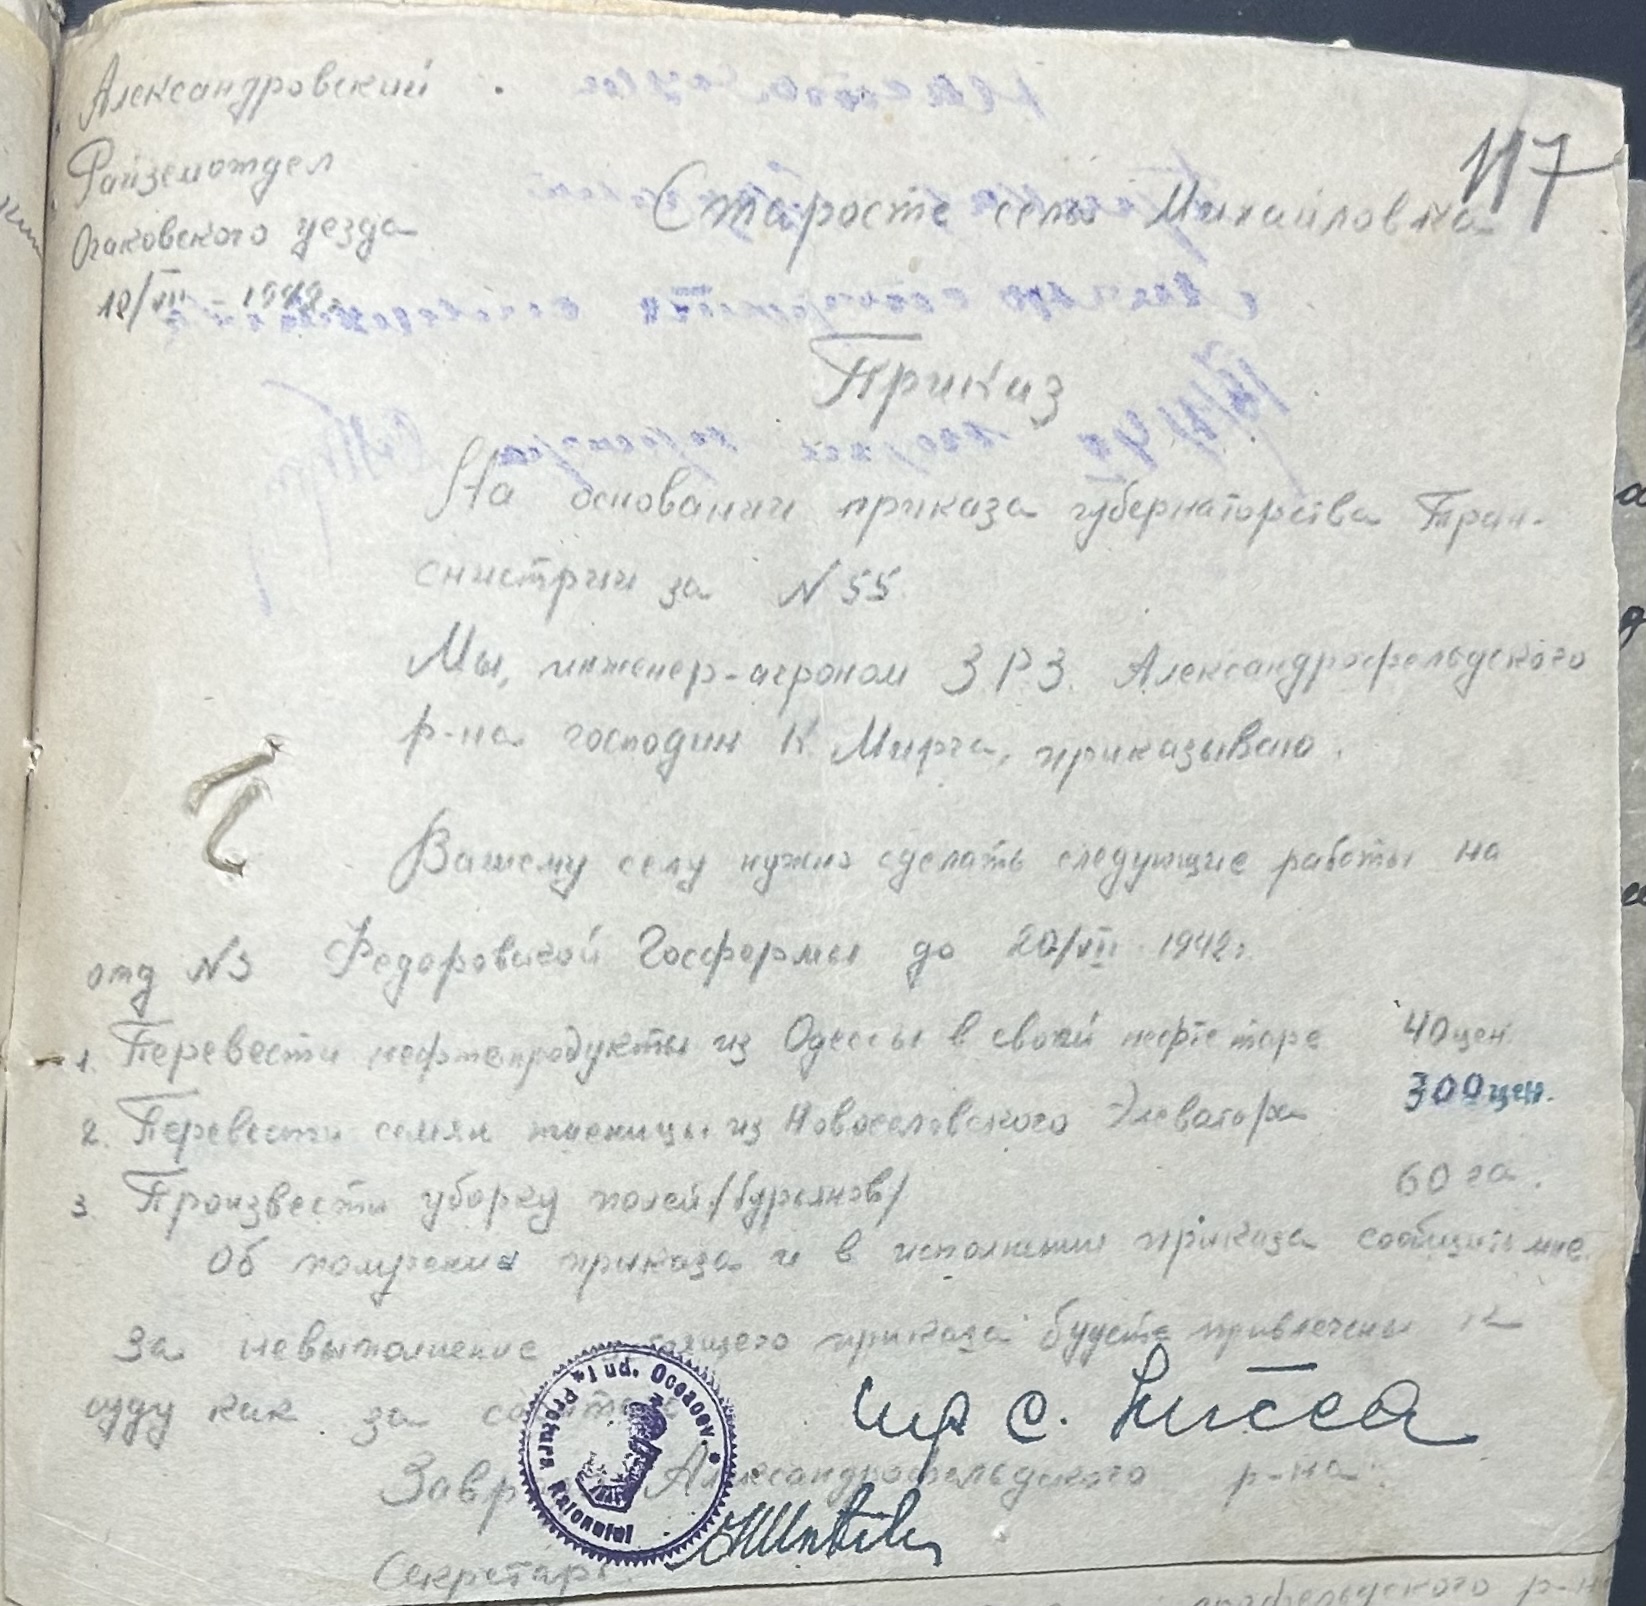 Александровский
Райземотдел
Очаковского уезда
18/VII - 1942
117
Старосте села Михайловка
Приказ
На основании приказа губернаторства Тран-
снистрии за N 55.
Мы, инженер-агроном З.Р.З. Александрофельдского
р-на господин К. Мирга, приказываю.
Вашему селу нужно сделать следующие работы на
отд N3 Федоровской Госфермы до 20/VII 1942г.
1. Перевести нефтепродукты из Одессы в своей нефтетаре 40 цен.
2. Перевести семян пшеницы из Новоселовского Элеватора 300 цен.
3. Произвести уборку полей /бурьянов/ 60 га.
Об получении приказа и в исполнении приказа сообщить мне.
За невыполнение приказа будете привлечены к
суду как за
Александрофельдского р-на
Секретарь
Pretura Raionului
Jud. Oceacov